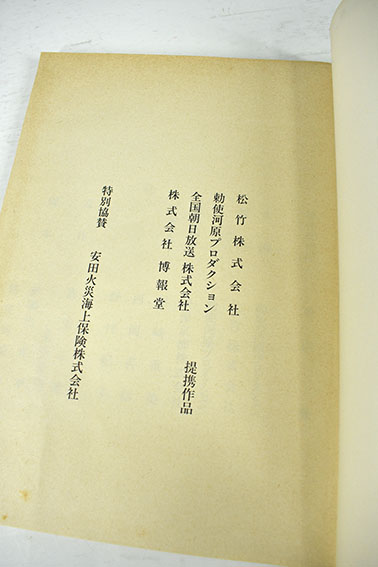 松竹株式会社
勅使河原プロダクション
全国朝日放送株式会社
株式会社博報堂
提携作品
特別協賛
安田火災海上保険株式会社